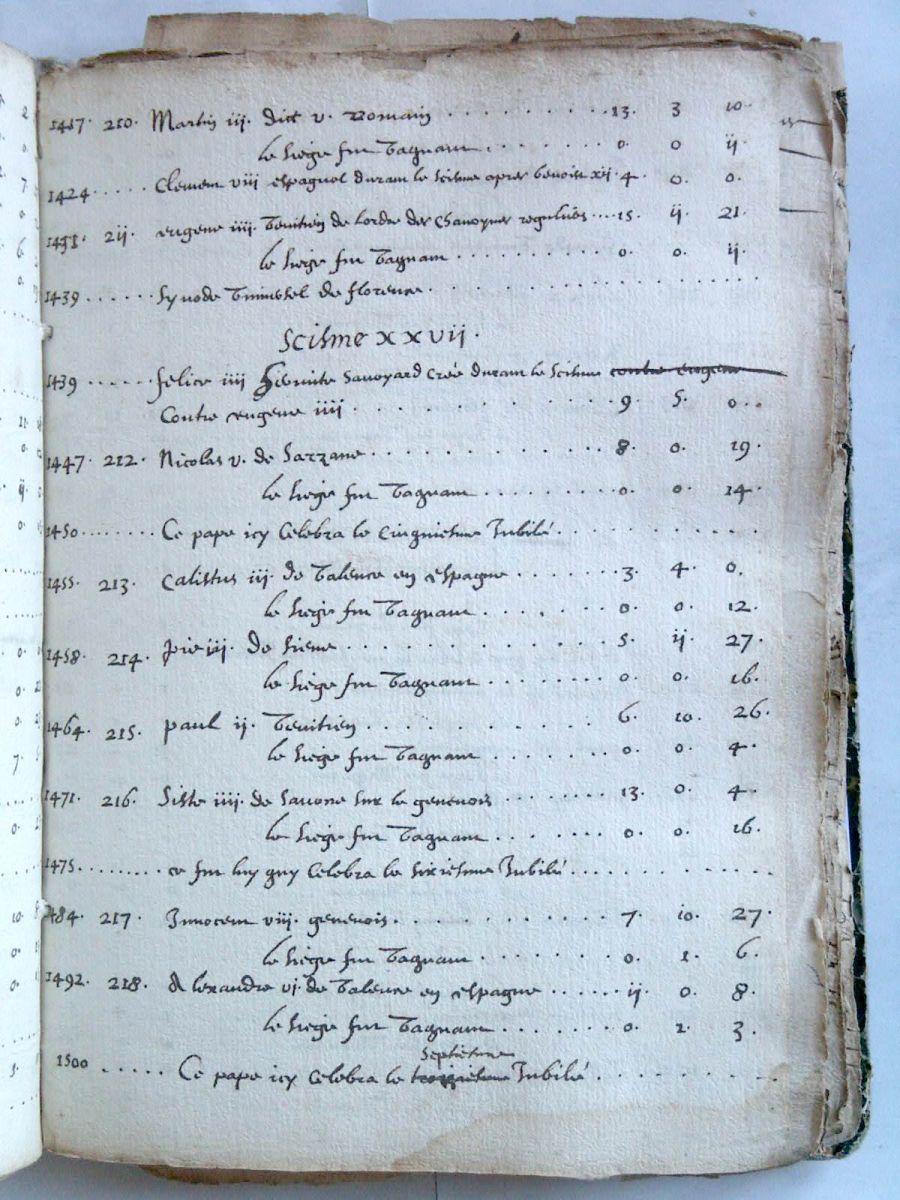 1417. 210. Martin iij. dict v. Romain . . . . . . . . . 13. 3 10.
le siege fut vaquant . . . . . . . 0. 0 ij.
1424 . . . . . Clement viij espagnol durant le scisme apres benoist xij. 4. 0. 0.
1431. 2ij. eugene iiij. venitien de lordre des chanoynes reguliers .... 15. ij. 21.
le siege fut vaquant . . . . . . . . 0. 0. ij.
1439 . . . . . . Synode universel de florence . . . . . . . . . . . . .
Scisme xxvij.
1439 . . . . . . felice iiij hermite savoyard creé durant le scisme contre eugene
Contre eugene iiij . . . . . . . . . . . . 9. 5. 0...
1447. 212. Nicolas v. de Sarzane . . . . . . . . . . . 8. 0. 19.
le siege fut vaquant . . . . . . . . 0. 0. 14.
1450 . . . . . . . Ce pape icy celebra le cinquiesme Jubilé . . . . . . . . .
1455. 213. Calistus iij. de valence en espagne . . . . . . . 3. 4. 0.
le siege fut vaquant . . . . . . . . 0. 0. 12.
1458. 214. pie ij. de siene . . . . . . . . . . . . 5. ij. 27.
le siege fut vaquant . . . . . . . 0. 0. 16.
1464. 215. paul ij. venitien . . . . . . . . . . . 6. 10. 26.
le siege fut vaquant . . . . . . . 0. 0. 4.
1471. 216. Sixte iiij. de savone sur le genenois . . . . . . . 13. 0. 4.
le siege fut vaquant . . . . . . . 0. 0. 16.
1475 . . . . . . . . . ce fut luy quy celebra le sixiesme Jubilé . . . . . . . . . .
1484. 217. Innocent viij. genenois . . . . . . . . . . 7. 10. 27.
le siege fut vaquant . . . . . . . . 0. 1. 6.
1492. 218. Alexandre vj. de valence en espagne . . . . . . ij 0. 8.
le siege fut vaquant . . . . . . . 0. 2. 3.
septiesme
1500 . . . . . Ce pape icy celebra le troiziesme Jubilé . . . . . . . . .